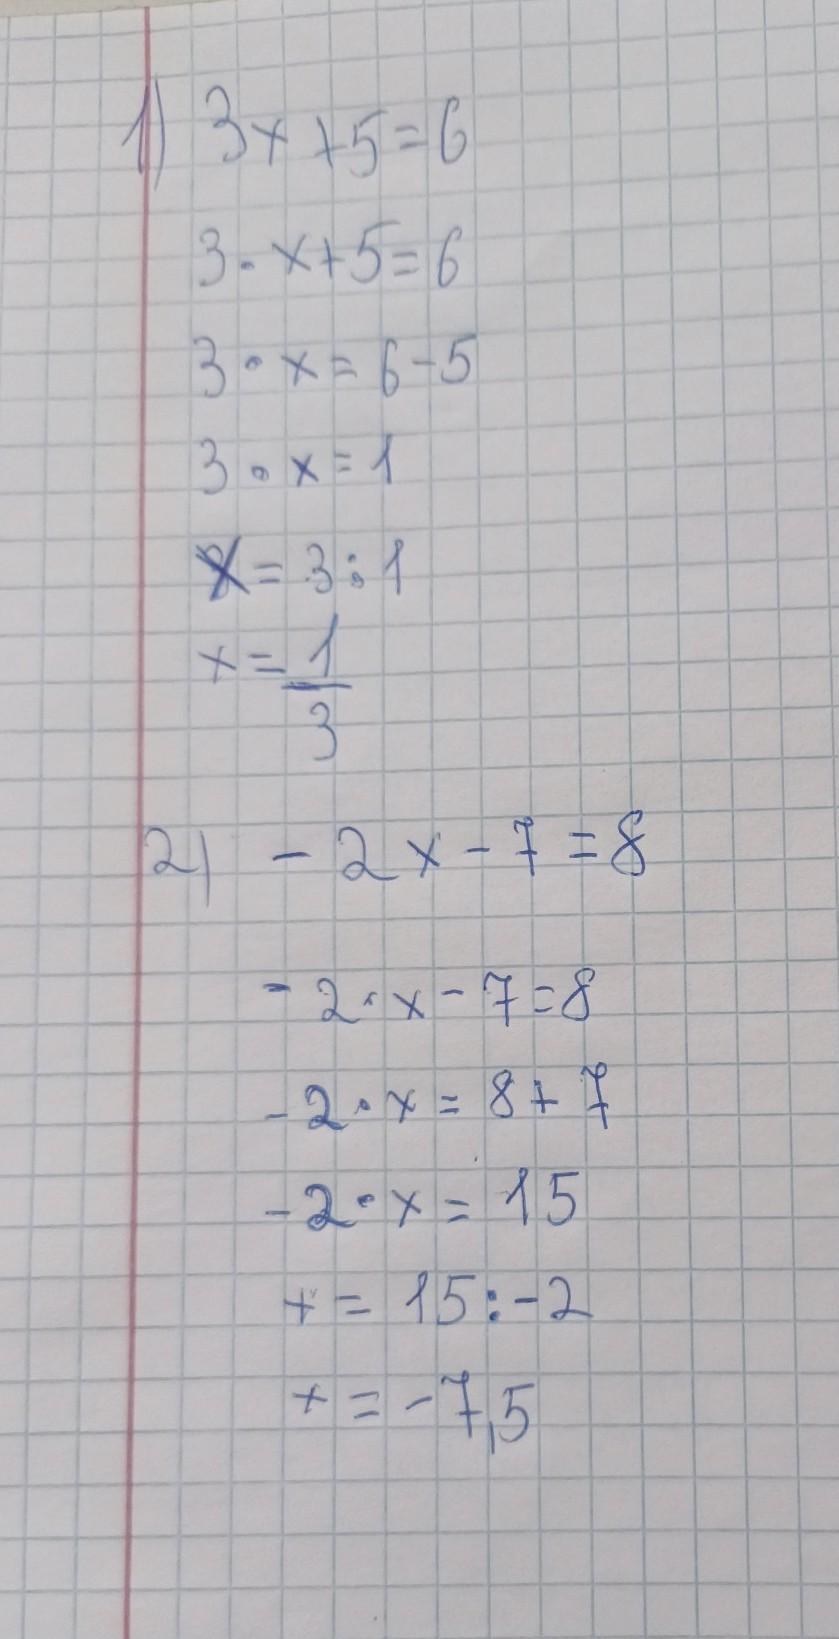 1) 3x+5=6
3·x+5=6
3·x=6-5
3·x=1
x=3:1
x=1/3
2) -2x-7=8
-2·x-7=8
-2·x=8+7
-2·x=15
x=15:-2
x=-7,5